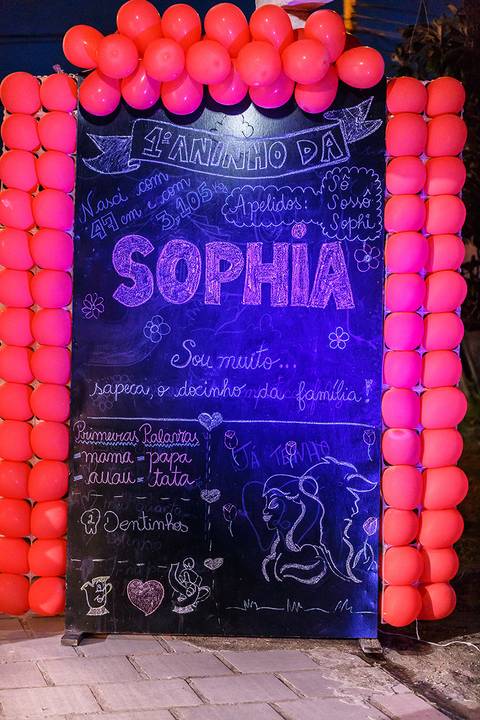 1º ANINHO DA
Nasci com
47 cm e com
3,105 kg
Apelidos:
Só
Sossó
Sophi
SOPHIA
Sou muito...
sapeca, o docinho da família!
Primeiras Palavras
mama = papa
auau = tata
2 Dentinhos
JÁ TENHO